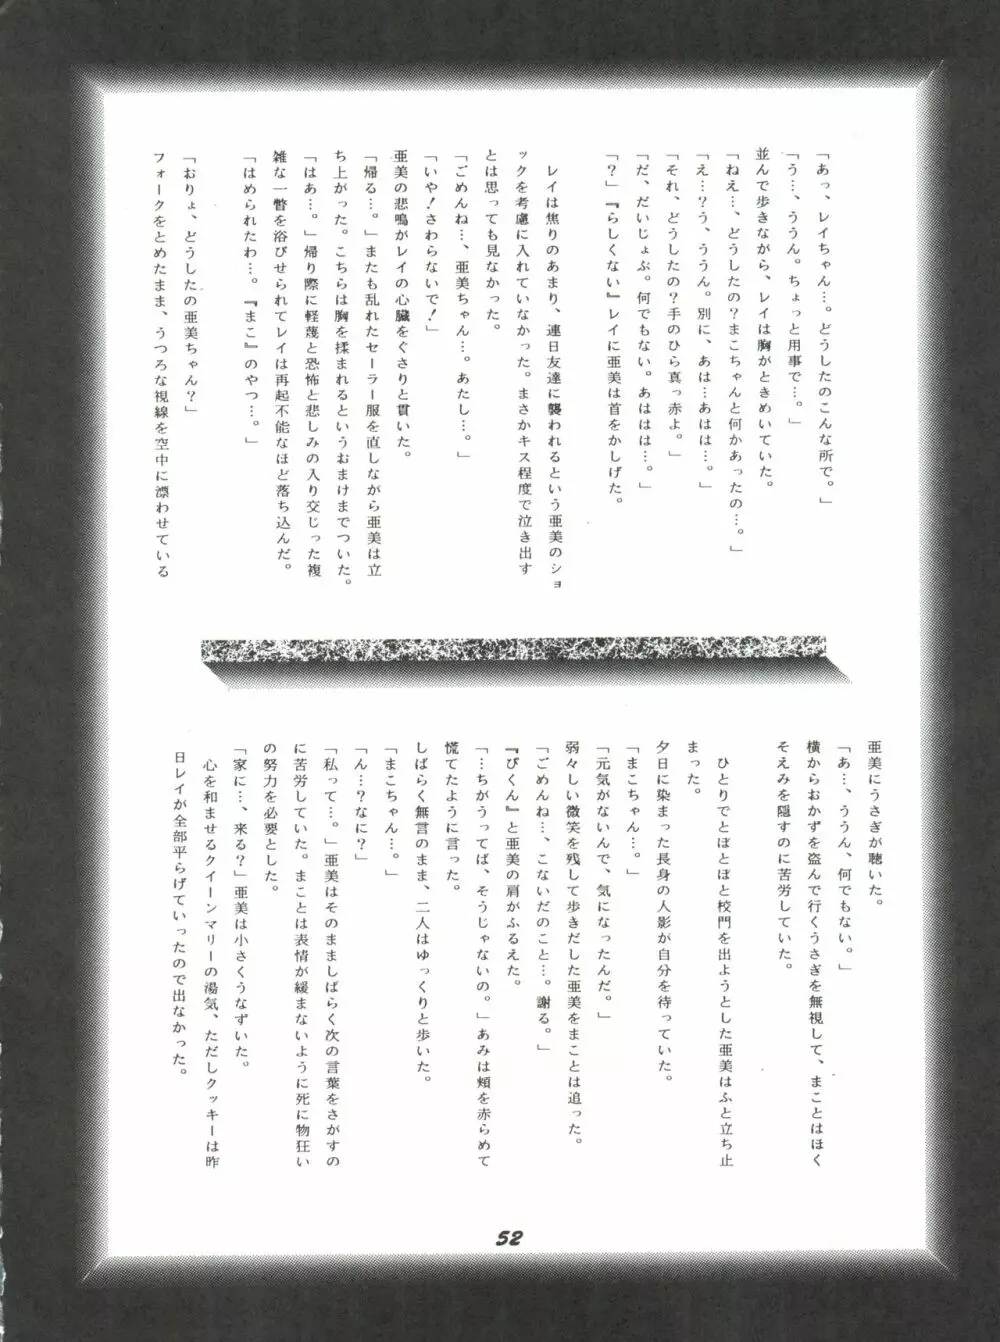 「あっ、レイちゃん…。どうしたのこんな所で。」
「う…、ううん。ちょっと用事で…。」
並んで歩きながら、レイは胸がときめいていた。
「ねえ…、どうしたの?まこちゃんと何かあったの…。」
「え…?う、ううん。別に、あは…あはは…。」
「それ、どうしたの?手のひら真っ赤よ。」
「だ、だいじょぶ。何でもない。あははは…。」
「?」『らしくない』レイに亜美は首をかしげた。
レイは焦りのあまり、連日友達に襲われるという亜美のショ
ックを考慮に入れていなかった。まさかキス程度で泣き出す
とは思っても見なかった。
「ごめんね…、亜美ちゃん…。あたし…。」
「いや!さわらないで!」
亜美の悲鳴がレイの心臓をぐさりと貫いた。
「帰る…。」またも乱れたセーラー服を直しながら亜美は立
ち上がった。こちらは胸を揉まれるというおまけまでついた。
「はあ…。」帰り際に軽蔑と恐怖と悲しみの入り交じった複
雑な一瞥を浴びせられてレイは再起不能なほど落ち込んだ。
「はめられたわ…。『まこ』のやつ…。」
「おりょ、どうしたの亜美ちゃん?」
フォークをとめたまま、うつろな視線を空中に漂わせている
亜美にうさぎが聴いた。
「あ…、ううん、何でもない。」
横からおかずを盗んで行くうさぎを無視して、まことはほく
そえみを隠すのに苦労していた。
ひとりでとぼとぼと校門を出ようとした亜美はふと立ち止
まった。
夕日に染まった長身の人影が自分を待っていた。
「まこちゃん…。」
「元気がないんで、気になったんだ。」
弱々しい微笑を残して歩きだした亜美をまことは追った。
「ごめんね…、こないだのこと…。謝る。」
『ぴくん』と亜美の肩がふるえた。
「…ちがうってば、そうじゃないの。」あみは頬を赤らめて
慌てたように言った。
しばらく無言のまま、二人はゆっくりと歩いた。
「まこちゃん…。」
「ん…?なに?」
「私って…。」亜美はそのまましばらく次の言葉をさがすの
に苦労していた。まことは表情が緩まないように死に物狂い
の努力を必要とした。
「家に…、来る?」亜美は小さくうなずいた。
心を和ませるクイーンマリーの湯気、ただしクッキーは昨
日レイが全部平らげていったので出なかった。
52